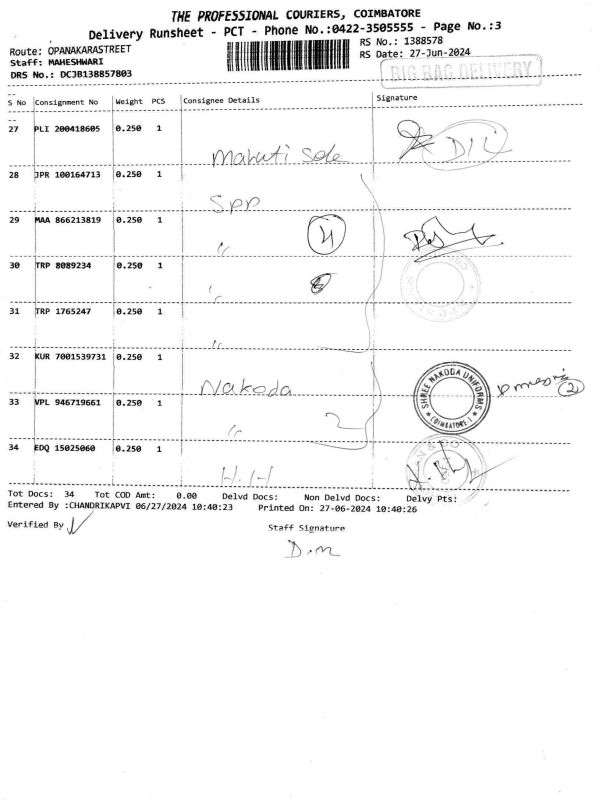 THE PROFESSIONAL COURIERS, COIMBATORE
Delivery Runsheet - PCT - Phone No.:0422-3505555 - Page No.:3
Route: OPANAKARASTREET
RS No.: 1388578
Staff: MAHESHWARI
RS Date: 27-Jun-2024
DRS No.: DCJB138857803
BIG BAG DELIVERY
S No Consignment No Weight PCS Consignee Details Signature
27 PLI 200418605 0.250 1
Maruti Sale
28 JPR 100164713 0.250 1
SPP
29 MAA 866213819 0.250 1
" 4
30 TRP 8089234 0.250 1
"
31 TRP 1765247 0.250 1
"
32 KUR 7001539731 0.250 1
Nakoda
SHREE NAKODA UNIFORMS
COIMBATORE-1
2
33 VPL 946719661 0.250 1
" 2
34 EDQ 15025060 0.250 1
H.H
Tot Docs: 34 Tot COD Amt: 0.00 Delvd Docs: Non Delvd Docs: Delvy Pts:
Entered By :CHANDRIKAPVI 06/27/2024 10:40:23 Printed On: 27-06-2024 10:40:26
Verified By
Staff Signature
D.m